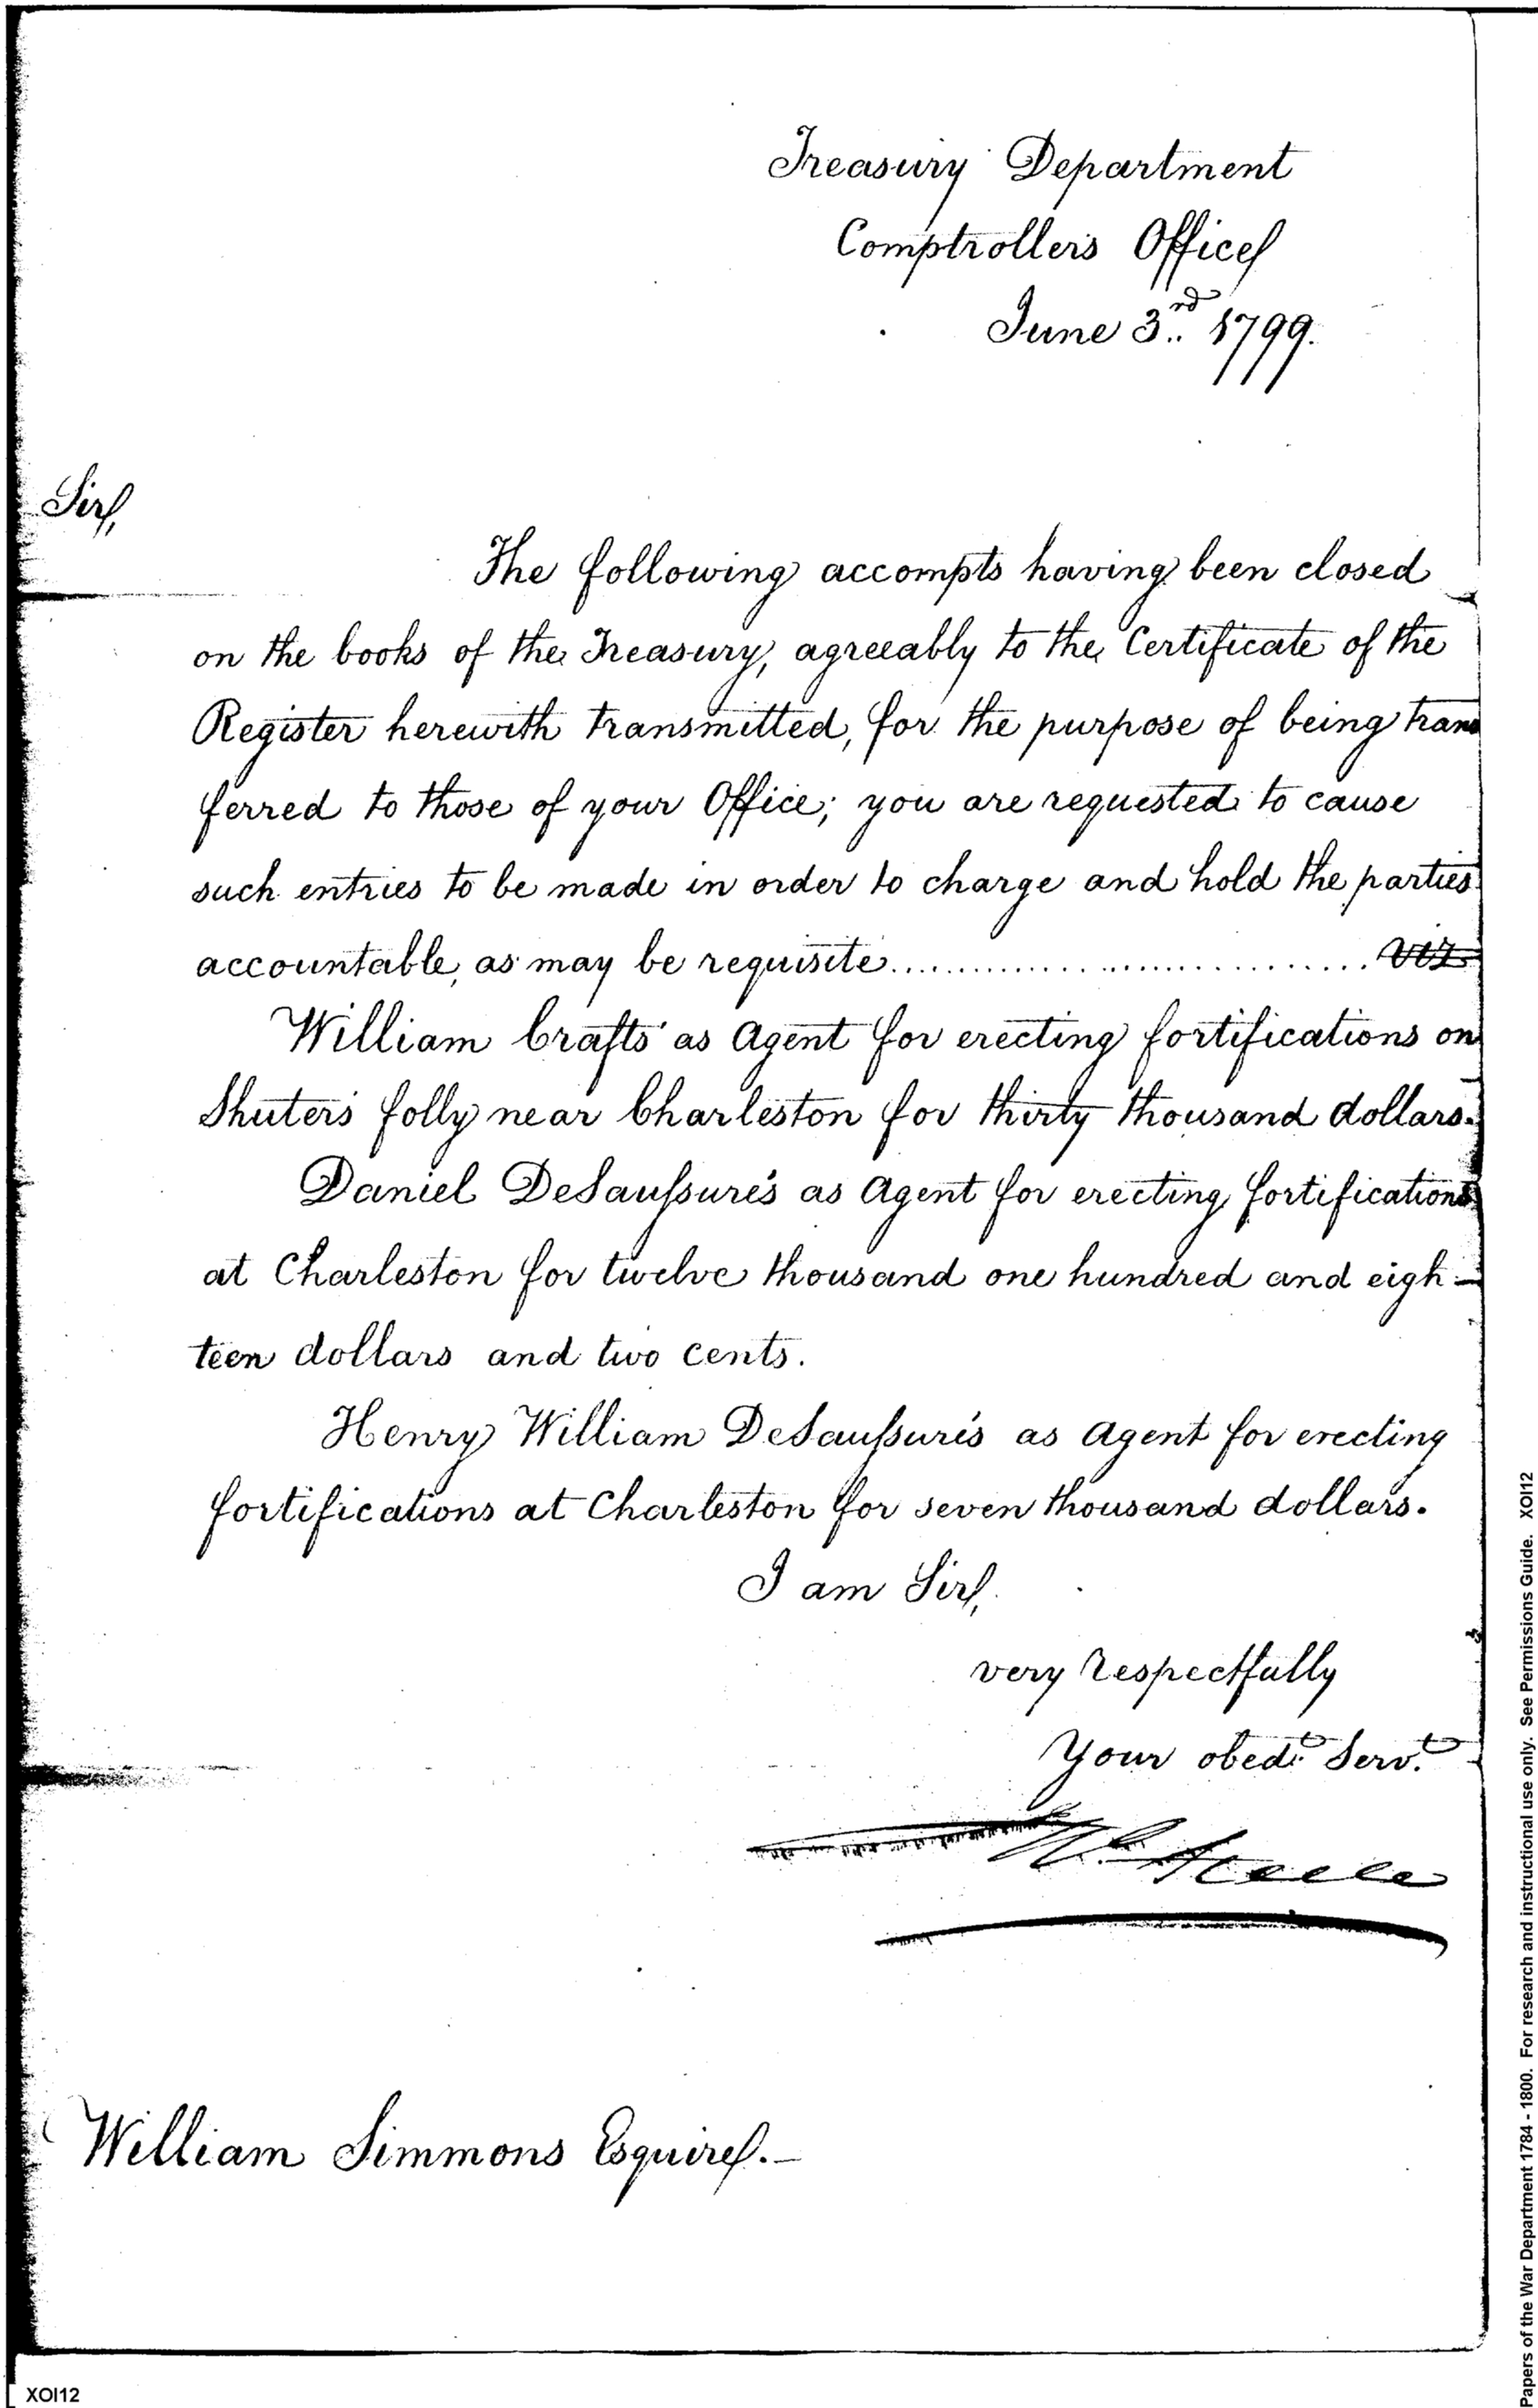 Treasury Department
Comptrollers Office
June 3rd 1799.
Sir,
The following accompts having been closed
on the books of the Treasury, agreeably to the Certificate of the
Register herewith transmitted, for the purpose of being trans
ferred to those of your Office; you are requested to cause
such entries to be made in order to charge and hold the parties
accountable, as may be requisite................................. viz
William Crafts' as Agent for erecting fortifications on
Shuter's folly near Charleston for thirty thousand dollars.
Daniel DeSaussure's as Agent for erecting fortifications
at Charleston for twelve thousand one hundred and eigh-
teen dollars and two cents.
Henry William DeSaussure's as Agent for erecting
fortifications at Charleston for seven thousand dollars.
I am Sir,
very respectfully
Your obedt. Servt.
Steele
William Simmons Esquire.-
XOI12
Papers of the War Department 1784 - 1800. For research and instructional use only. See Permissions Guide. XOI12